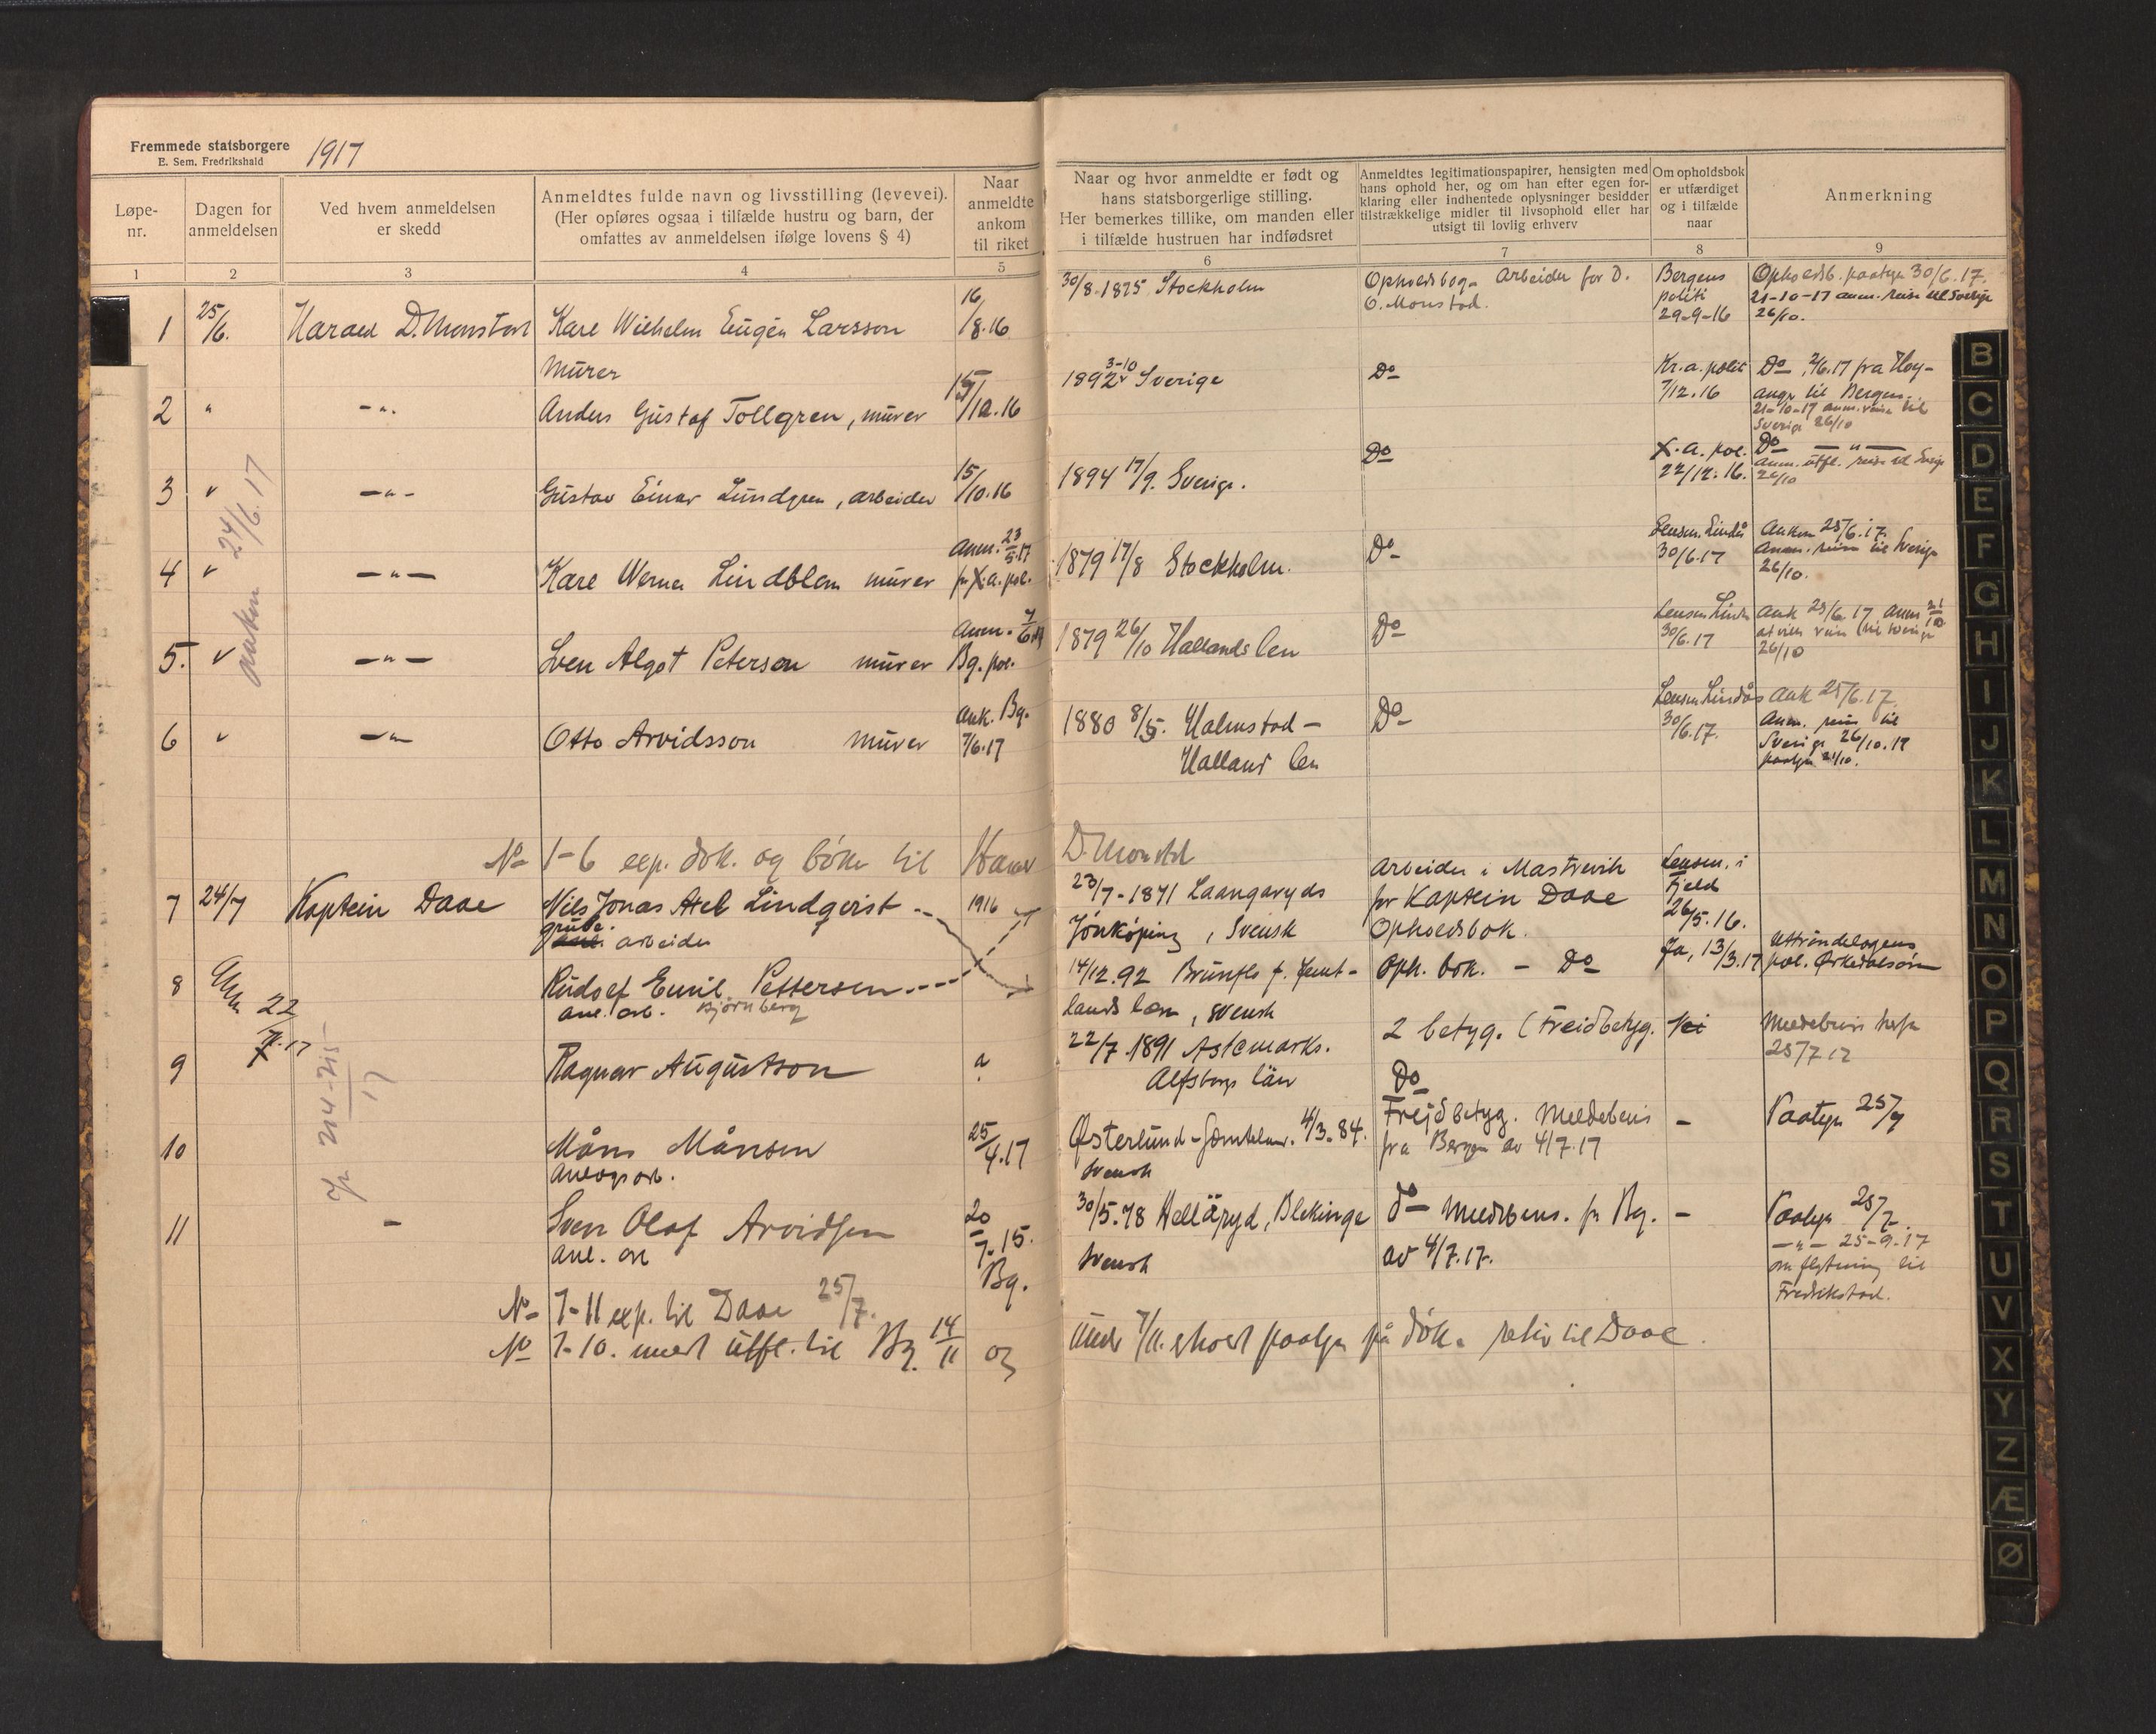 Fremmede statsborgere 1917
E. Sem. Fredrikshald
Løpe-
nr.
Dagen for
anmeldelsen
Ved hvem anmeldelsen
er skedd
Anmeldtes fulde navn og livsstilling (levevei).
(Her opføres ogsaa i tilfælde hustru og barn, der
omfattes av anmeldelsen ifølge lovens § 4)
Naar
anmeldte
ankom
til riket
Naar og hvor anmeldte er født og
hans statsborgerlige stilling.
Her bemerkes tillike, om manden eller
i tilfælde hustruen har indfødsret
Anmeldtes legitimationspapirer, hensigten med
hans ophold her, og om han efter egen for-
klaring eller indhentede oplysninger besidder
tilstrækkelige midler til livsophold eller har
utsigt til lovlig erhverv
Om opholdsbok
er utfærdiget
og i tilfælde
naar
Anmerkning
1 2 3 4 5 6 7 8 9
1 25/6. Harald D. Monstad Karl Wilhelm Eugén Larsson 16/8.16
murer
30/8.1875 Stockholm
Opholdsbog - Arbeider for D.
O. Monstad.
Bergens
politi
29-9-16
Opholdsb. paategn 30/6.17.
21-10-17 anm. reise til Sverige
26/10.
2 " -"- Anders Gustaf Tollgren, murer 15/10.16
3-10
1892 Sverige
Do
Kr.a. politi
7/12.16
Do 2/6.17 fra Høy-
anger til Bergen.
21-10-17 anm. reise til
Sverige 26/10
3 " -"- Gustav Einar Lundgren, arbeider 15/10.16
1894 17/9. Sverige.
Do
X.a. pol.
22/12.16.
Do -"-
anm. utfl. reise til Sverige
26/10
ankom 24/6.17
4 " -"- Karl Werner Lindblom murer
Anm. 23/5.17
fr X.a. pol.
1879 17/8 Stockholm.
Do
Lensm. Lindås
30/6.17
Ankom 25/6.17.
Anm. reise til Sverige
26/10.
5. " -"- Sven Algot Peterson murer
Anm. 7/6.17
Bg. pol.
1879 26/10 Hallands len
Do
30/6.17
Ank 25/6.17
26/10
6 " -"- Otto Arvidsson murer
Ank. Bg.
7/6.17
1880 8/5. Halmstad -
Halland len
Do
Lensm Lindås
30/6.17.
Ank 25/6.17.
Anm. reise til
Sverige 26/10.17
paategn 21/10.
No 1-6 exp. dok. og bøker til Harald D. Monstad
7 24/7 Kaptein Daae Nils Jonas Axel Lindqvist 1916
grube
arbeider
23/7-1871 Laangaryds
Jönköping, Svensk
Arbeider i Mastrevik
for Kaptein Daae
Opholdsbok.
Lensm. i
Fjeld
26/5.16.
8 Rudolf Emil Pettersen
anl. arb. Bjørnberg
14/12.92 Brunflo f. Jemt-
lands læn, svensk
Oph. bok. - Do
Ja, 13/3.17
Uttrøndelagens
pol. Orkedalsøren
Anm 22/7.17
9 Ragnar Augustson
22/7.1891
Alfsborgs län
2 betyg. (Freidbetyg.
Do
Nei
25/7 17
10 Måns Månsen 25/4.17
Anlægsarb.
Østerlund - Jæmteland. 4/3.84.
svensk
Frejdbetyg. Meldebevis
fra Bergen av 4/7.17
-
Paategn 25/7
11 - Sven Olof Arvidsen
anl. arb
20/7-15.
Bg.
30/5.78 Hellaryd, Blekinge
svensk
do Meldebevis. fr Bg.
av 4/7.17.
-
Paategn 25/7.
-"- 25-9-17
om flytning til
Fredrikstad.
No 7-11 exp. til Daae 25/7.
No 7-10. meldt utfl. til Bg. 14/11 og